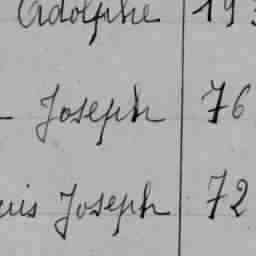 Adolphe 19
- Joseph 76
uis Joseph 72